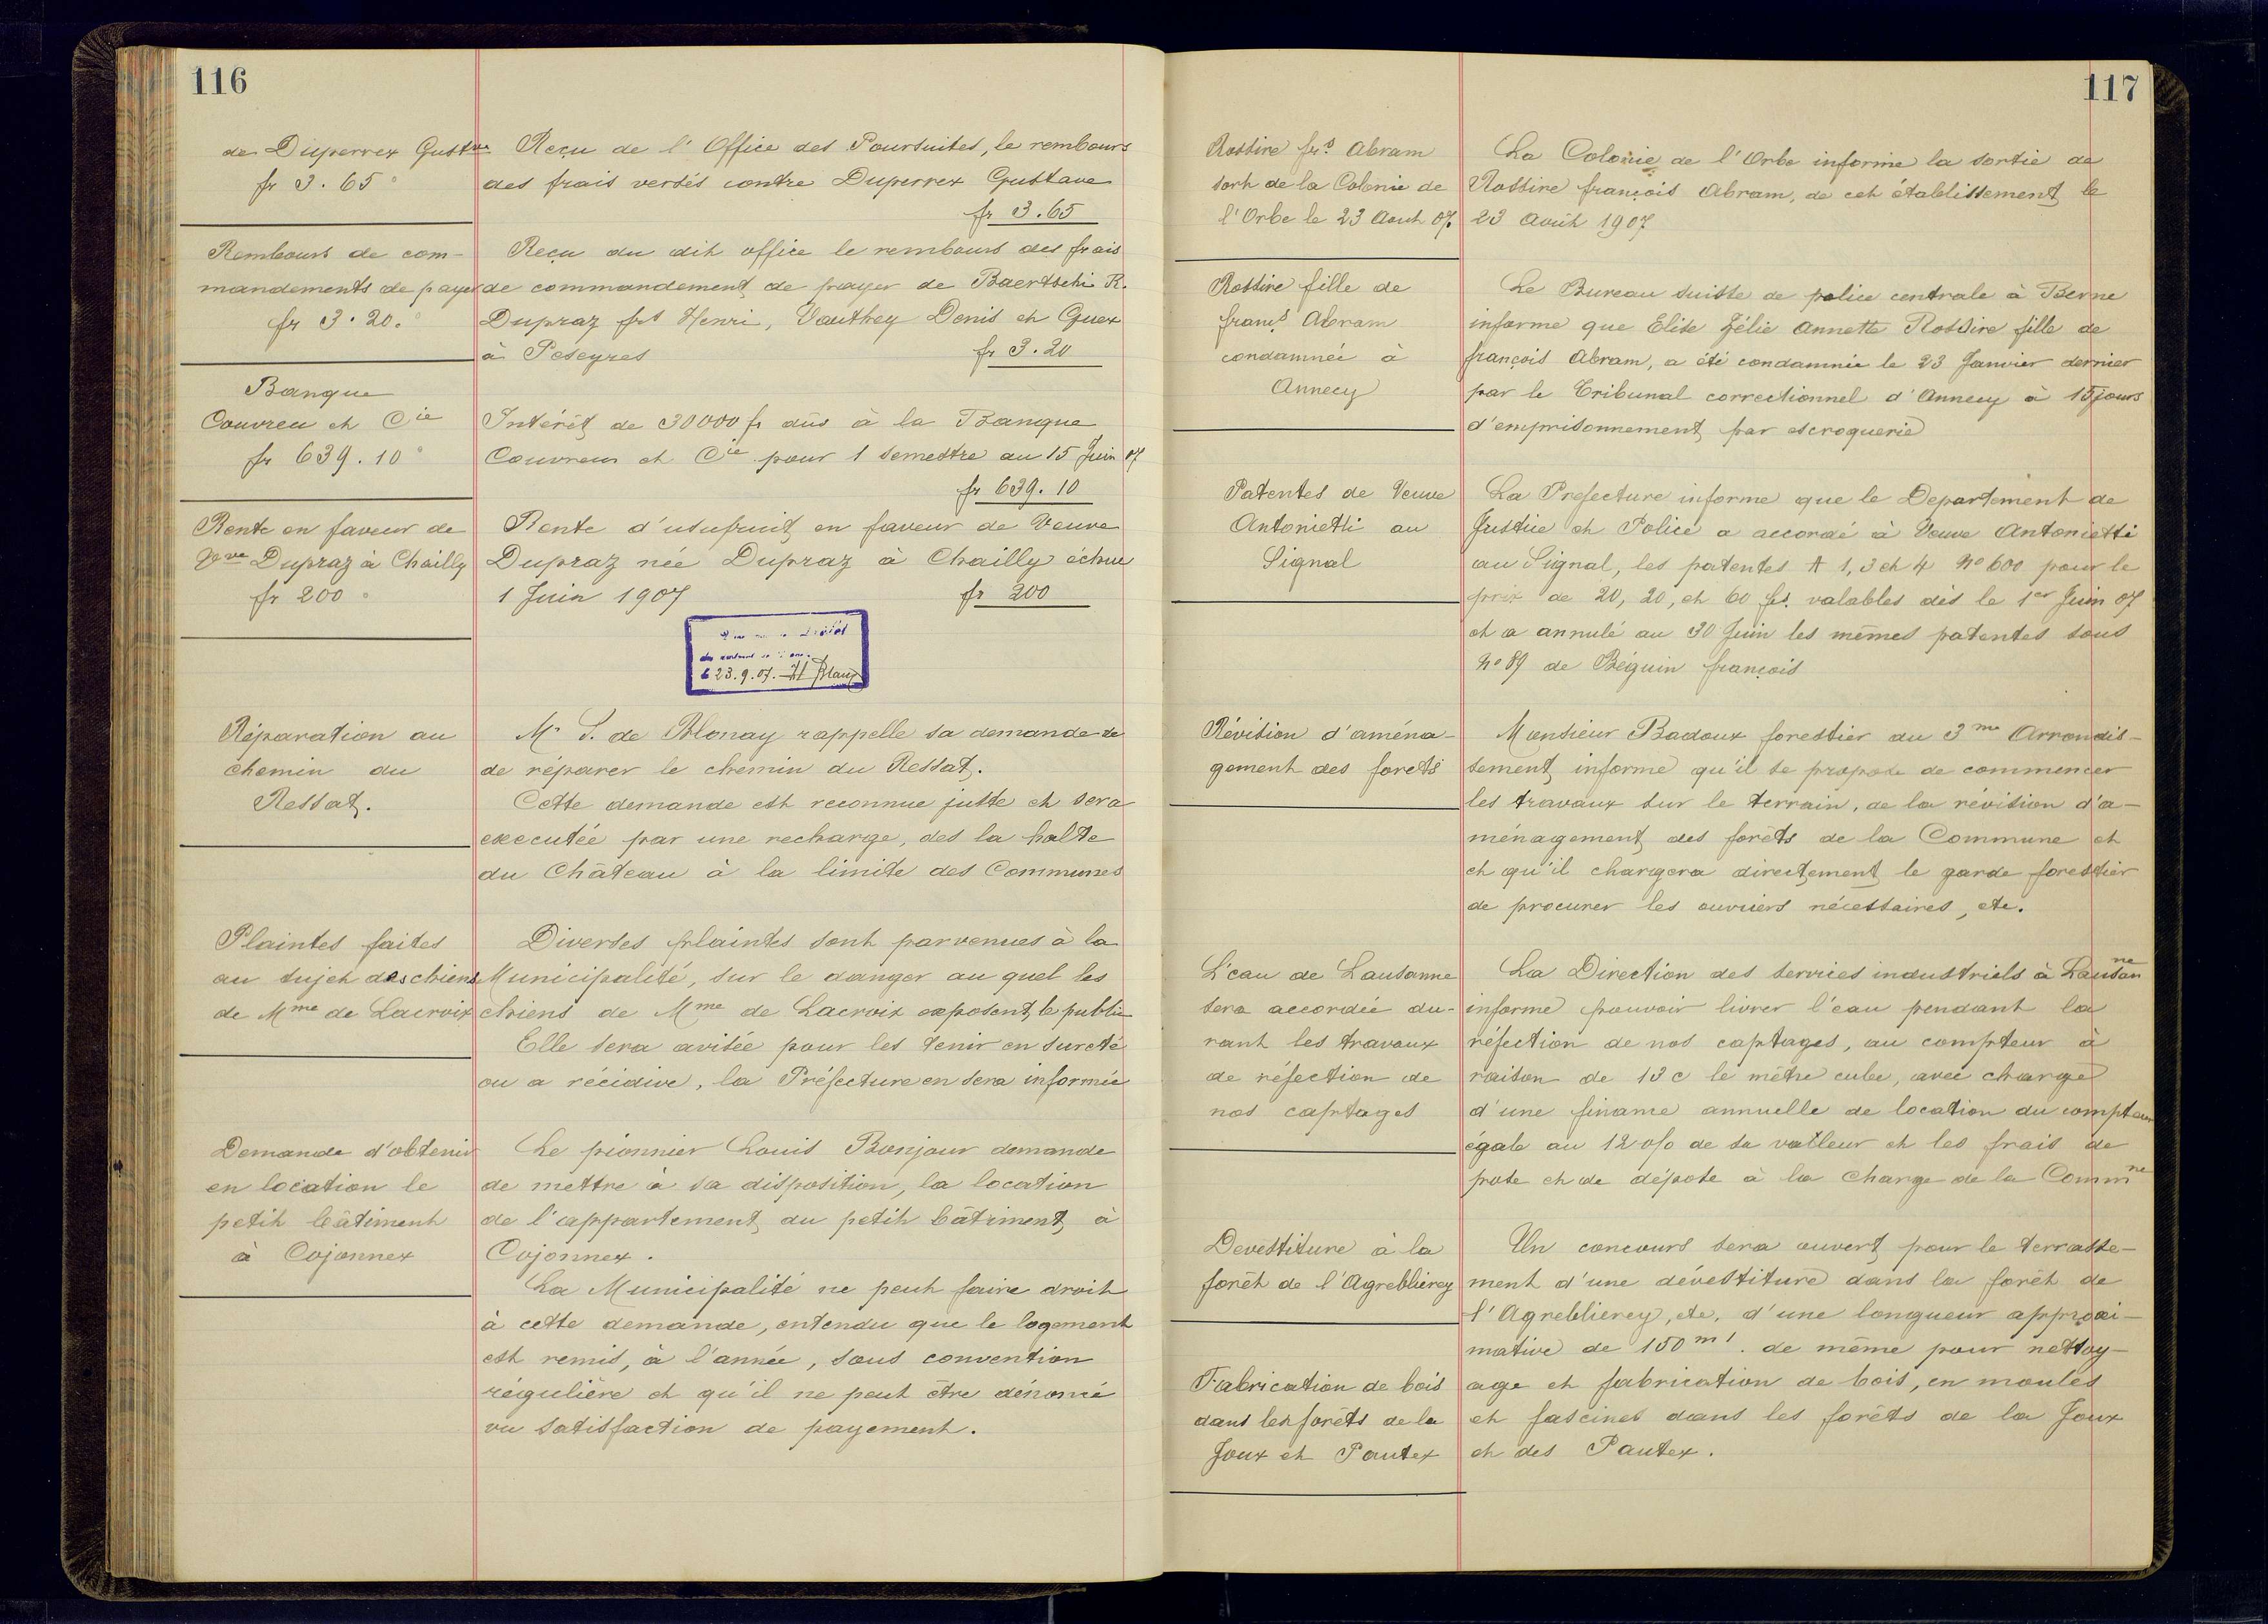 116
de Duperrex Gustve
fr 3.65
Reçu de l'Office des Poursuites, le rembours
des frais versés contre Duperrex Gustave
fr 3.65
Rembours de com-
mandements de payer
fr 3.20.
Reçu du dit office le rembours des frais
de commandement de payer de Baertschi R.
Dupraz frs Henri, Vauthey Denis et Guex
à Peseyres fr 3.20
Banque
Couvreu et Cie
fr 639.10
Intérêt de 30000 fr dûs à la Banque
Couvreu et Cie pour 1 semestre au 15 Juin 07
fr 639.10
Rente en faveur de
Vve Dupraz à Chailly
fr 200
Rente d'usufruit en faveur de Veuve
Dupraz née Dupraz à Chailly échue
1 Juin 1907 fr 200
23.9.07.
Réparation au
chemin du
Ressat.
Mr S. de Blonay rappelle sa demande de
de réparer le chemin du Ressat.
Cette demande est reconnue juste et sera
executée par une recharge, des la halte
du Château à la limite des Communes
Plaintes faites
au sujet des chiens
de Mme de Lacroix
Diverses plaintes sont parvenues à la
Municipalité, sur le danger au quel les
chiens de Mme de Lacroix exposent le public
Elle sera avisée pour les tenir en sureté
ou a récidive, la Préfecture en sera informée
Demande d'obtenir
en location le
petit bâtiment
à Cojonnex
Le pionnier Louis Bonjour demande
de mettre à sa disposition, la location
de l'appartement du petit bâtiment à
Cojonnex.
La Municipalité ne peut faire droit
à cette demande, entendu que le logement
est remis, à l'année, sous convention
régulière et qu'il ne peut être dénoncé
vu satisfaction de payement.
117
Rossire frs Abram
sort de la Colonie de
l'Orbe le 23 Aout 07.
La Colonie de l'Orbe informe la sortie de
Rossire françois Abram, de cet établissement le
23 Août 1907
Rossire fille de
frans Abram
condamnée à
Annecy
Le Bureau suisse de police centrale à Berne
informe que Elise Zélie Annette Rossire fille de
françois Abram, a été condamnée le 23 Janvier dernier
par le Tribunal correctionnel d'Annecy à 15 jours
d'emprisonnement par escroquerie
Patentes de Veuve
Antonietti au
Signal
La Prefecture informe que le Departement de
Justice et Police a accordé à Veuve Antonietti
au Signal, les patentes A 1, 3 et 4 No 600 pour le
prix de 20, 20, et 60 frs. valables dès le 1er Juin 07
et a annulé au 30 Juin les mêmes patentes sous
No 89 de Béguin françois
Révision d'aména-
gement des forêts
Monsieur Badoux forestier du 3me Arrondis-
sement informe qu'il se propose de commencer
les travaux sur le terrain, de la révision d'a-
ménagement des forêts de la Commune et
et qu'il chargera directement le garde forestier
de procurer les ouvriers nécessaires, etc.
L'eau de Lausanne
sera accordée du-
rant les travaux
de réfection de
nos captages
La Direction des services industriels à Lausanne
informe pouvoir livrer l'eau pendant la
réfection de nos captages, au compteur à
raison de 13 c le mètre cube, avec charge
d'une finance annuelle de location du compteur
égale au 12 o/o de sa valleur et les frais de
pose et de dépose à la charge de la Commne
Devestiture à la
forêt de l'Agreblierey
Un concours sera ouvert pour le terrasse-
ment d'une dévestiture dans la forêt de
l'Agreblierey, etc. d'une longueur approxi-
mative de 150 m1. de même pour nettoy-
Fabrication de bois
dans les forêts de la
Joux et Pautex
age et fabrication de bois, en moules
et fascines dans les forêts de la Joux
et des Pautex.